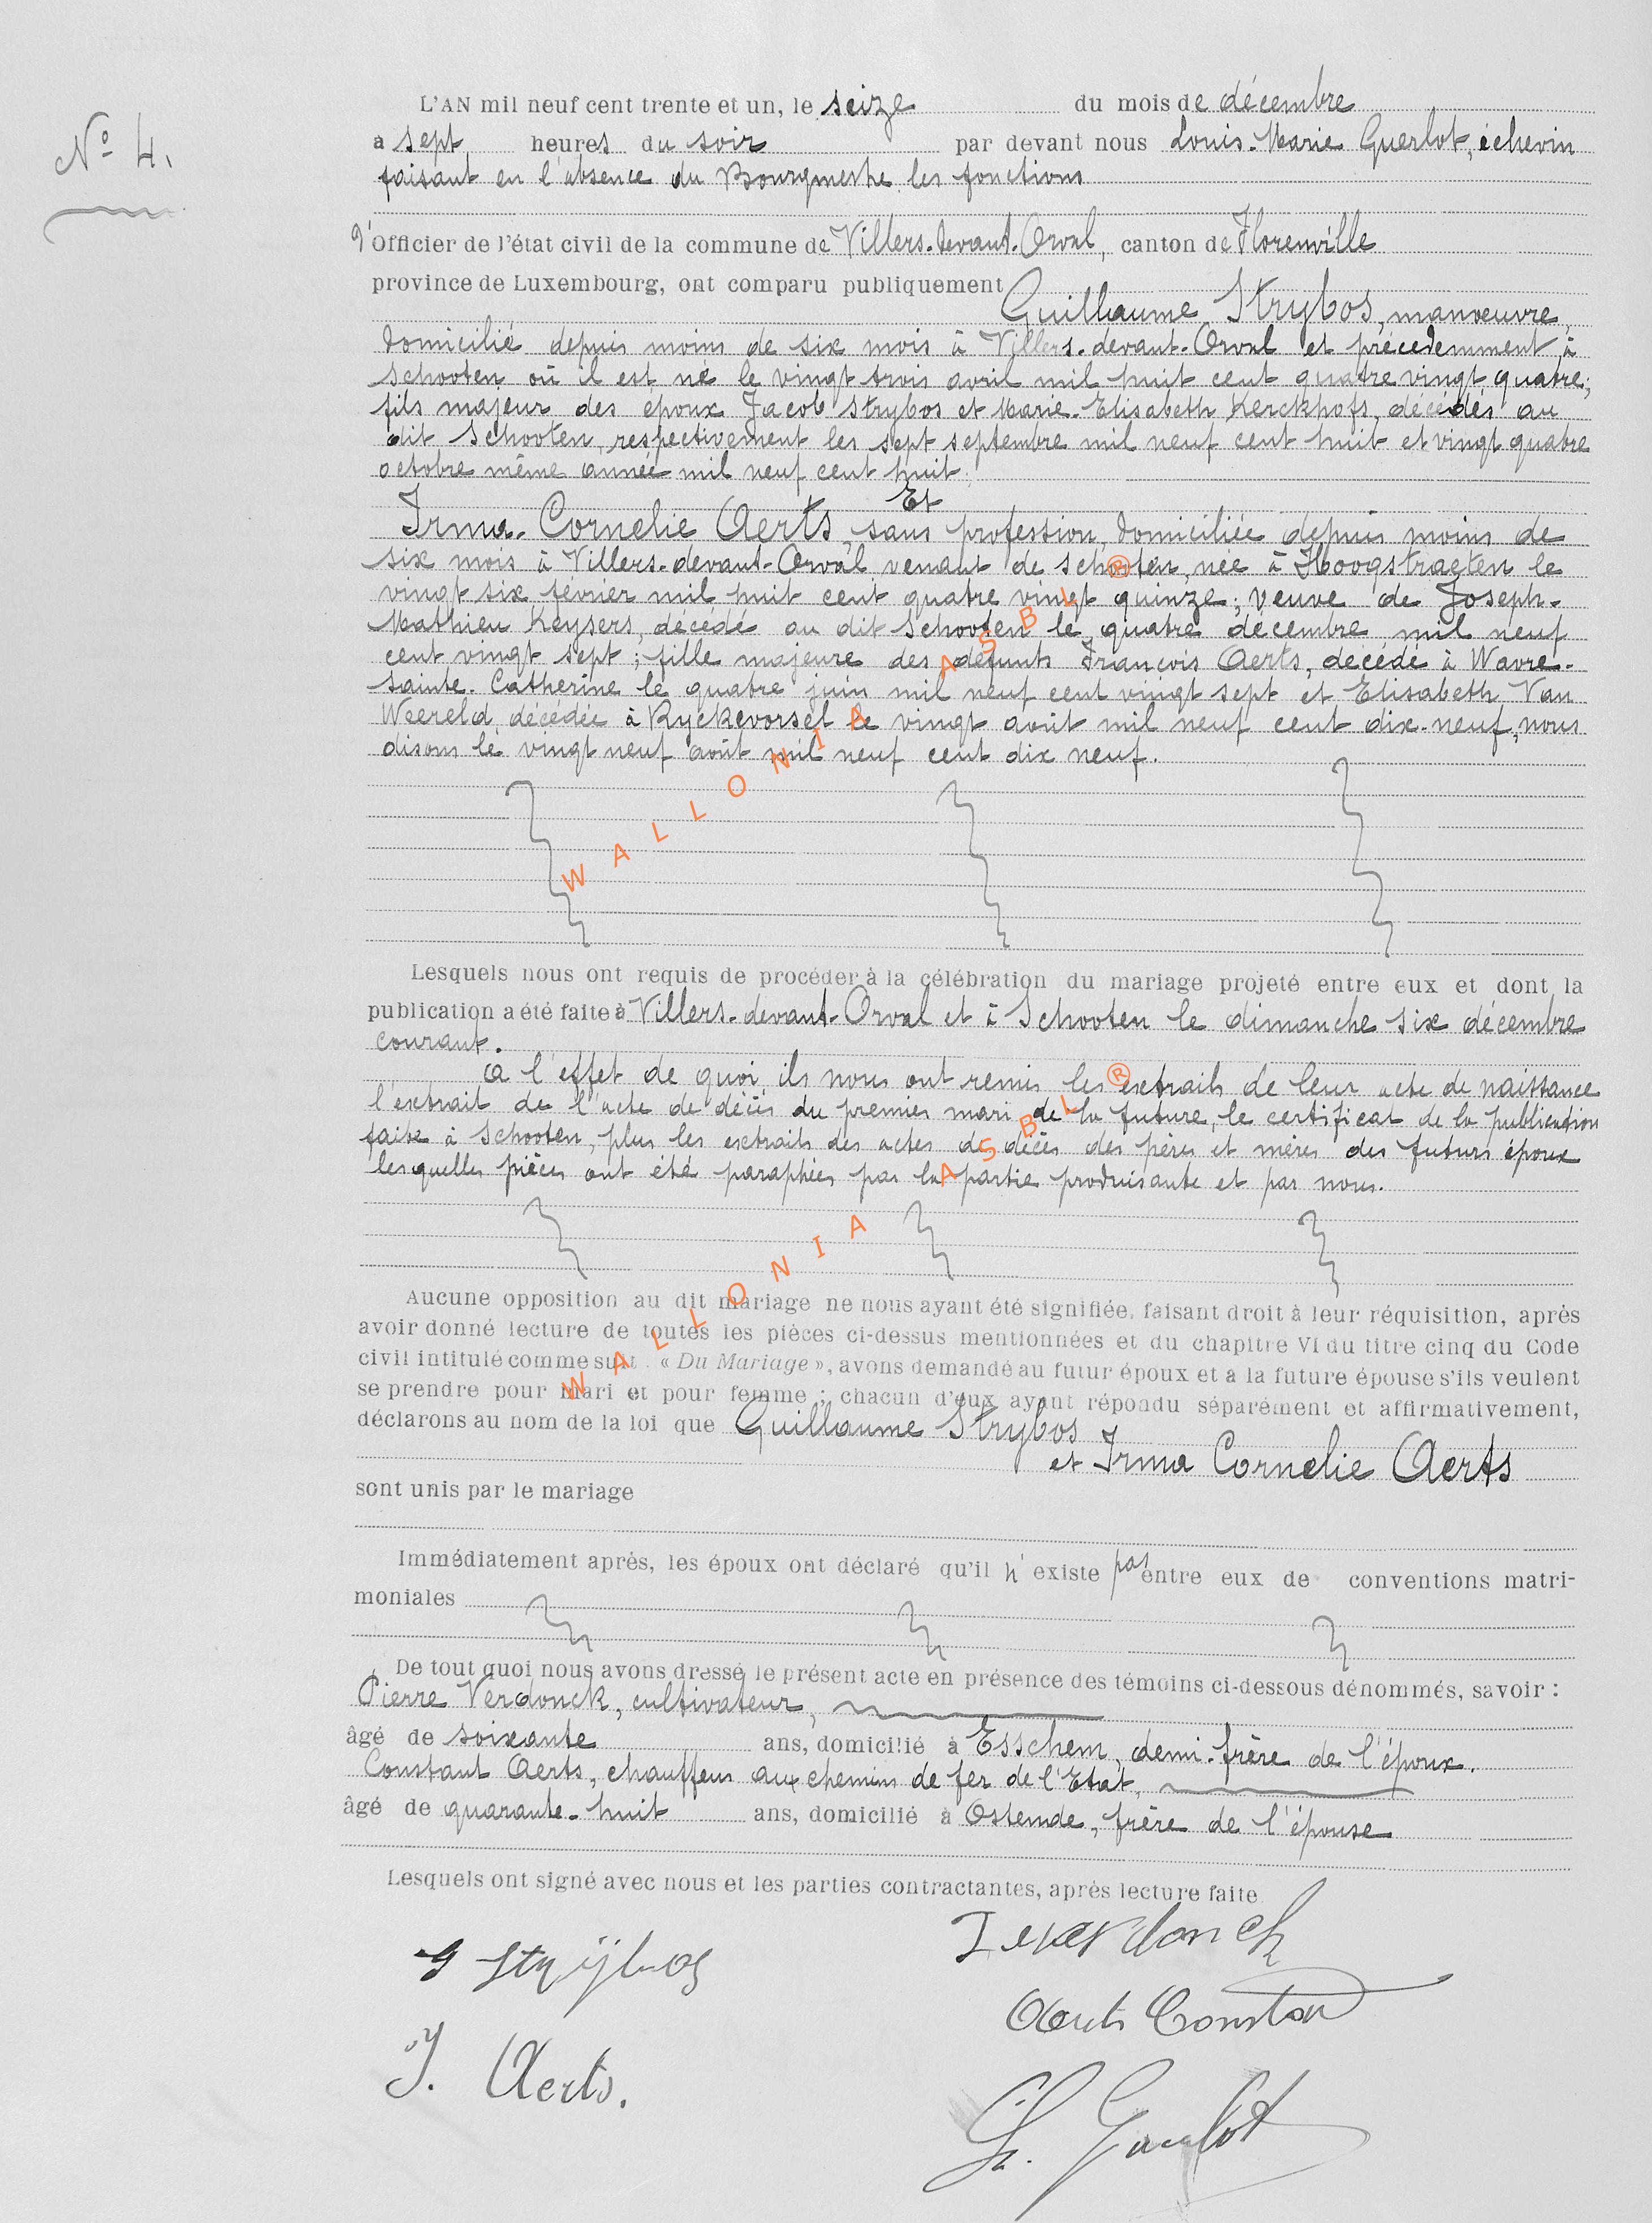 N° 4.
L'AN mil neuf cent trente et un, le seize du mois de décembre
a sept heures du soir par devant nous Louis-Marie Guerlot, échevin
faisant en l'absence du Bourgmestre les fonctions
d'Officier de l'état civil de la commune de Villers-devant-Orval, canton de Florenville
province de Luxembourg, ont comparu publiquement
Guillaume Strybos, manœuvre,
domicilié depuis moins de six mois à Villers-devant-Orval et précédemment à
Schooten où il est né le vingt trois avril mil huit cent quatre vingt quatre;
fils majeur des époux Jacob Strybos et Marie-Elisabeth Kerckhofs, décédés au
dit Schooten, respectivement les sept septembre mil neuf cent huit et vingt quatre
octobre même année mil neuf cent huit;
Et
Irma-Cornelie Aerts, sans profession, domiciliée depuis moins de
six mois à Villers-devant-Orval venant de Schooten, née à Hoogstraeten le
vingt six février mil huit cent quatre vingt quinze; veuve de Joseph-
Mathieu Keysers, décédé au dit Schooten le quatre décembre mil neuf
cent vingt sept; fille majeure des défunts François Aerts, décédé à Wavre-
Sainte-Catherine le quatre juin mil neuf cent vingt sept et Elisabeth Van
Weereld, décédée à Ryckevorsel le vingt août mil neuf cent dix-neuf, nous
disons le vingt neuf août mil neuf cent dix neuf.
Lesquels nous ont requis de procéder à la célébration du mariage projeté entre eux et dont la
publication a été faite à Villers-devant-Orval et à Schooten le dimanche six décembre
courant.
A l'effet de quoi ils nous ont remis les extraits de leur acte de naissance
l'extrait de l'acte de décès du premier mari de la future, le certificat de la publication
faite à Schooten, plus les extraits des actes de décès des pères et mères des futurs époux
lesquelles pièces ont été paraphées par la partie produisante et par nous.
Aucune opposition au dit mariage ne nous ayant été signifiée, faisant droit à leur réquisition, après
avoir donné lecture de toutes les pièces ci-dessus mentionnées et du chapitre VI du titre cinq du Code
civil intitulé comme suit : « Du Mariage », avons demandé au futur époux et à la future épouse s'ils veulent
se prendre pour mari et pour femme ; chacun d'eux ayant répondu séparément et affirmativement,
déclarons au nom de la loi que Guillaume Strybos
et Irma Cornelie Aerts
sont unis par le mariage
Immédiatement après, les époux ont déclaré qu'il n'existe pas entre eux de conventions matri-
moniales
De tout quoi nous avons dressé le présent acte en présence des témoins ci-dessous dénommés, savoir :
Pierre Verdonck, cultivateur,
âgé de soixante ans, domicilié à Esschen, demi-frère de l'époux.
Constant Aerts, chauffeur aux chemins de fer de l'Etat,
âgé de quarante-huit ans, domicilié à Ostende, frère de l'épouse
Lesquels ont signé avec nous et les parties contractantes, après lecture faite
G Strÿbos
Aerts Constan
I. Aerts.
WALLONIA ASBL ®
WALLONIA ASBL ®